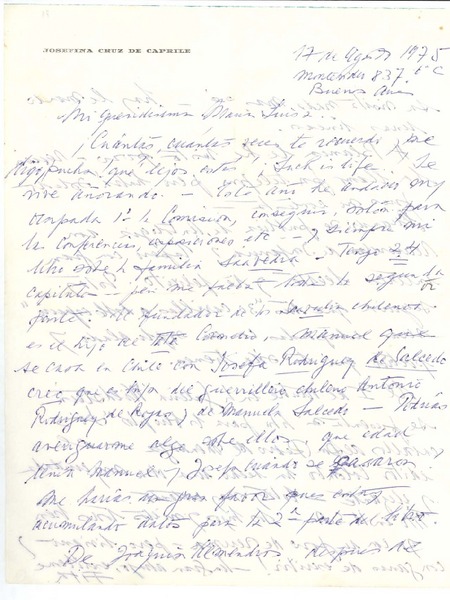 JOSEFINA CRUZ DE CAPRILE
17 de Agosto 1975
Montevideo 837. 6º C
Buenos Aires
Mi queridísima María Luisa:
¡Cuántas, cuántas veces te recuerdo, me
digo, pucha, que lejos estás! Such is life. Se
vive añorando. — Este año he andado muy
ocupada 1º la Comisión, conseguir salón para
las conferencias, exposiciones etc — y siempre mi
libro sobre la familia Saavedra. Tengo 24
capítulos — pero me falta toda la segunda
parte. El fundador de la familia chilena
es el hijo de Cornelio, Manuel que
se casa en Chile con Josefa Rodríguez de Salcedo
creo que es hija del guerrillero chileno Antonio
Rodríguez de Rojas y de Manuela Salcedo — Podrías
averiguarme algo sobre ellos, que edad
tenía Manuel y Josefa cuando se casaron
me harías un gran favor, pues estoy
acumulando datos para la 2ª parte del libro.
De Joaquín Almendros después de